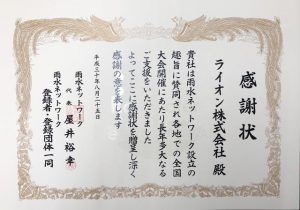 感謝状
ライオン株式会社 殿
貴社は雨水ネットワーク設立の
趣旨に賛同され各地での全国
大会開催にあたり長年多大なる
ご支援をいただきました
よってここに感謝状を贈呈し深く
感謝の意を表します
平成三十年八月二十五日
雨水ネットワーク
代表 屋井裕幸
雨水ネットワーク
登録者・登録団体一同